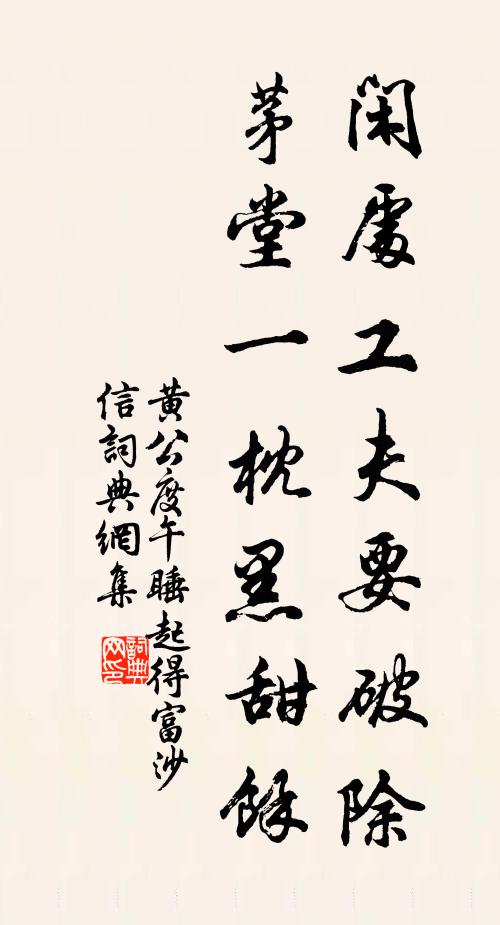 閑處工夫要破除
茅堂一枕黑甜餘
黃公度午睡起得富沙
信詞典網集
詞典网印